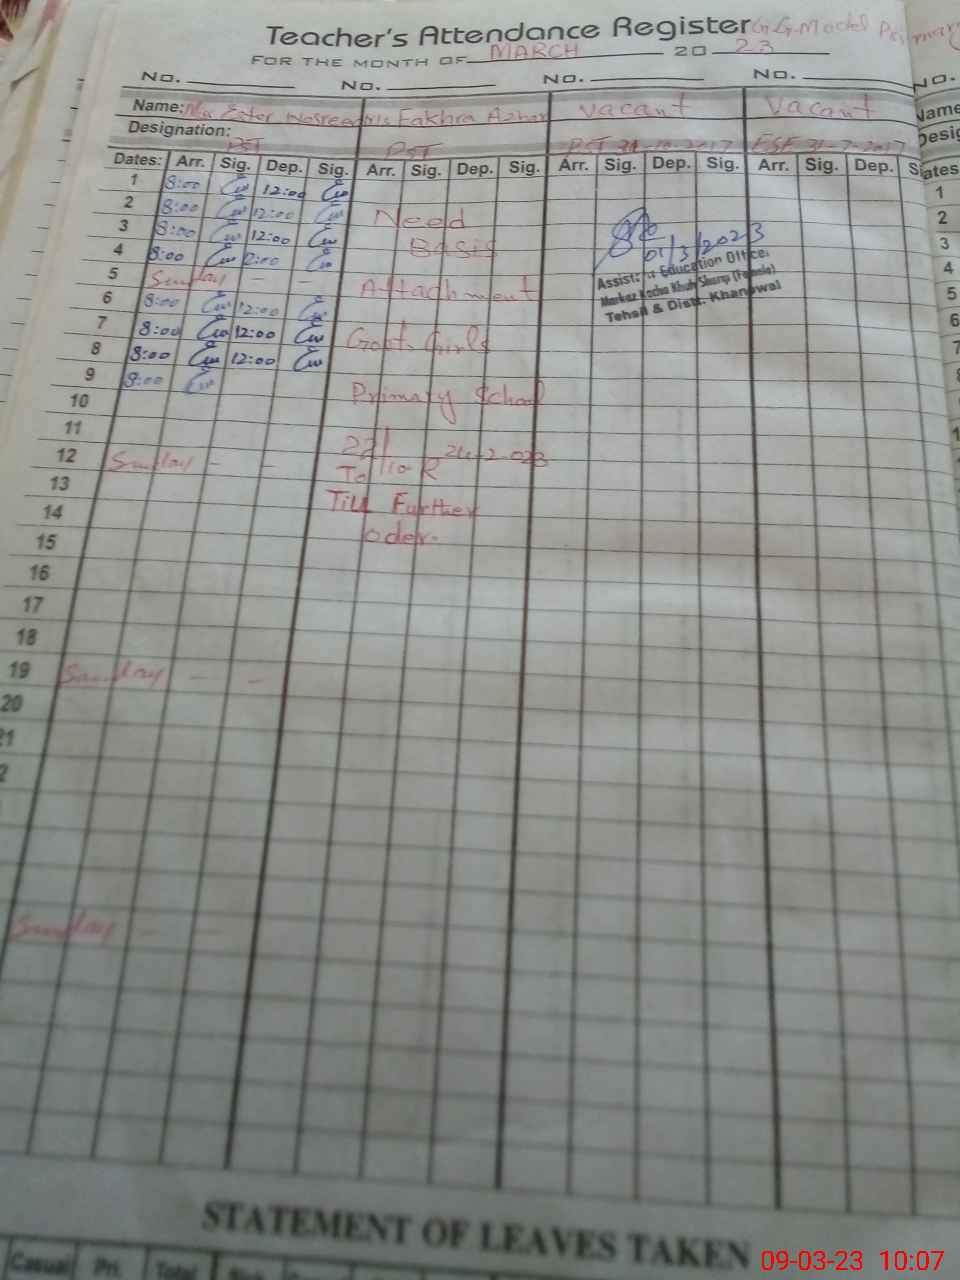 Teacher's Attendance Register G.G Model Primary
FOR THE MONTH OF MARCH 20 23
No. No. No. No. No.
Name: Ester Nosreen Fakhra Azhar Vacant Vacant Name
Designation: PST PST PST 31-10-2017 ESE 31-7-2017 Desig
Dates: Arr. Sig. Dep. Sig. Arr. Sig. Dep. Sig. Arr. Sig. Dep. Sig. Arr. Sig. Dep. S ates
1 8:00 12:00 1
2 8:00 12:00 Need 2
3 8:00 12:00 Basis 01/3/2023 3
4 8:00 2:00 Assistant Education Office. 4
5 Sunday - - Attachment Markaz Kacha Khuh Sharqi (Female) 5
6 8:00 12:00 Tehsil & Distt. Khanewal 6
7 8:00 12:00 Govt. Girls 7
8 8:00 12:00
9 8:00 Primary School
10
11 22/
12 Sunday - - To 110 R 24-2-023
13 Till Further
14 oder.
15
16
17
18
19 Sunday - -
20
21
2
Sunday - -
STATEMENT OF LEAVES TAKEN
Casual Pri. Total
09-03-23 10:07